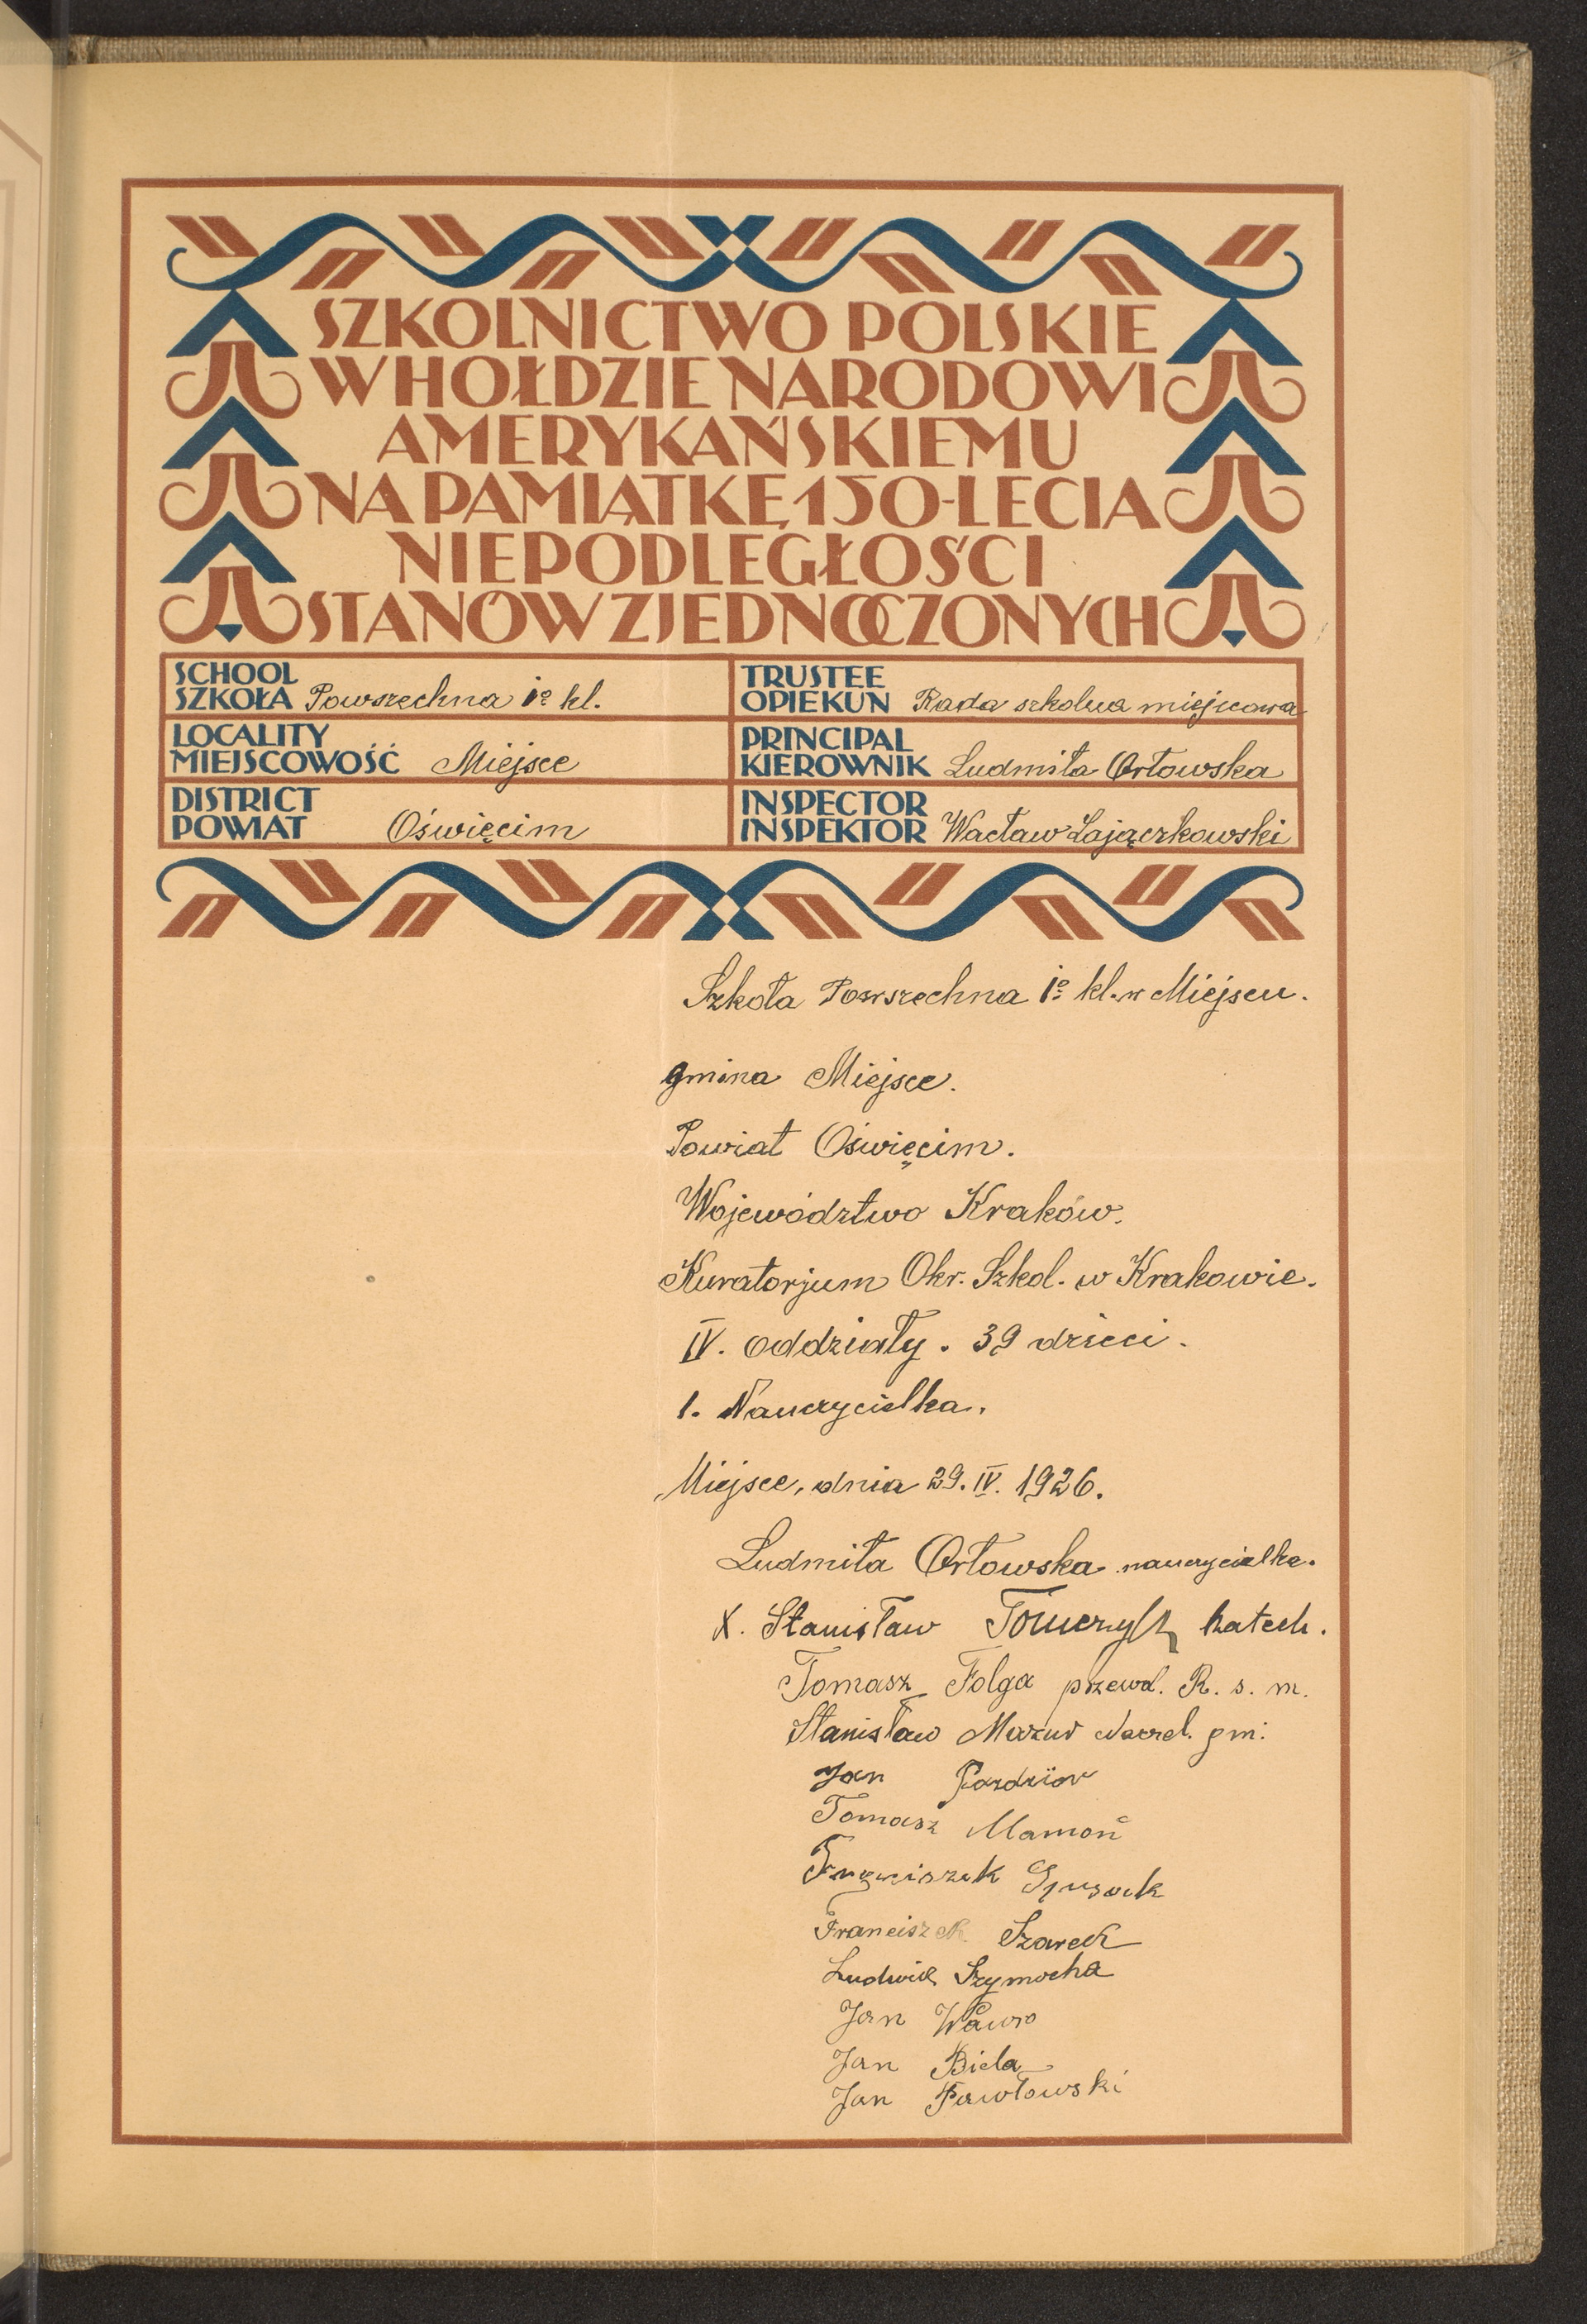 SZKOLNICTWO POLSKIE
W HOŁDZIE NARODOWI
AMERYKAŃSKIEMU
NA PAMIĄTKĘ 150-LECIA
NIEPODLEGŁOŚCI
STANÓW ZJEDNOCZONYCH
SCHOOL
SZKOŁA Powszechna 1o kl.
TRUSTEE
OPIEKUN Rada szkolna miejscowa
LOCALITY
MIEJSCOWOŚĆ Miejsce
PRINCIPAL
KIEROWNIK Ludmiła Orłowska
DISTRICT
POWIAT Oświęcim
INSPECTOR
INSPEKTOR Wacław Zajączkowski
Szkoła Powszechna 1o kl. w Miejscu.
gmina Miejsce.
Powiat Oświęcim.
Województwo Kraków.
Kuratorjum Okr. Szkol. w Krakowie.
IV. oddziały. 39 dzieci.
1. Nauczycielka.
Miejsce, dnia 29. IV. 1926.
Ludmiła Orłowska nauczycielka.
X. Stanisław katech.
Tomasz Folga przewd. R. s. m.
Stanisław Mazur Naczel. gm:
Jan Pazdzior
Tomasz Mamoń
Franciszek
Franciszek Szarek
Ludwik Szymocha
Jan Wawro
Jan Biela
Jan Pawłowski